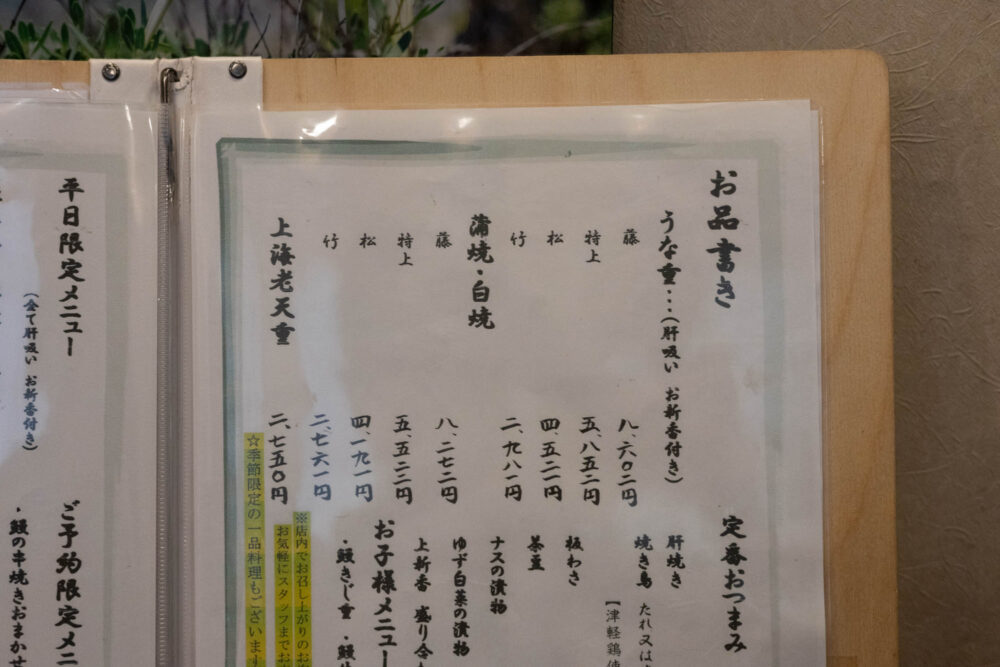 お品書き
うな重…（肝吸い お新香付き）
藤 八、六〇二円
特上 五、八五二円
松 四、五二一円
竹 二、九八一円
蒲焼・白焼
藤 八、二七二円
特上 五、五二二円
松 四、一九一円
竹 二、七六一円
上海老天重 二、七五〇円
☆季節限定の一品料理もございます
定番おつまみ
肝焼き
焼き鳥 たれ又は
【津軽鶏使
板わさ
茶豆
ナスの漬物
ゆず白菜の漬物
上新香 盛り合
お子様メニュー
・鰻きじ重 ・鰻
※店内でお召し上がりのお
お気軽にスタッフまでお
平日限定メニュー
（全て肝吸い お新香付き）
ご予約限定メニ
・鰻の串焼きおまかせ